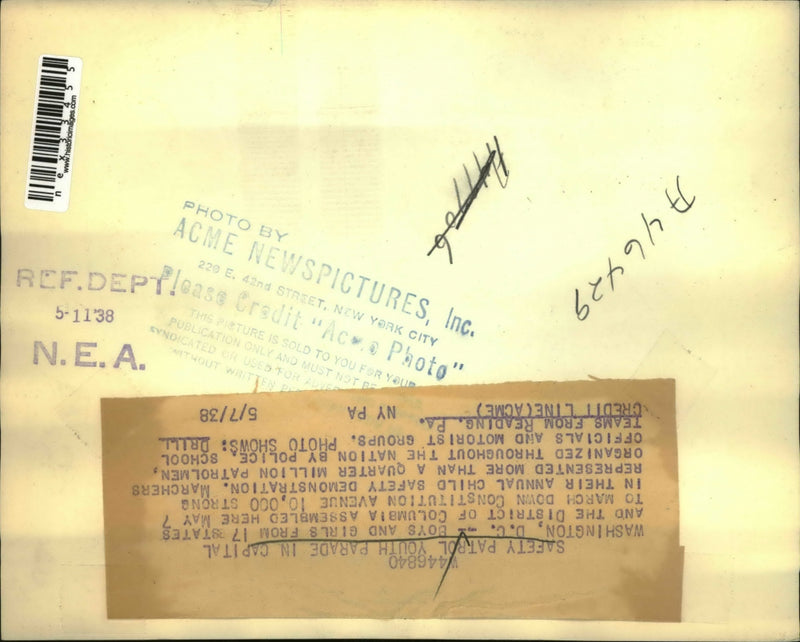 nex33455
www.historicimages.com
A46429
PHOTO BY
ACME NEWSPICTURES, Inc.
220 E. 42nd STREET, NEW YORK CITY
Please Credit "Acme Photo"
THIS PICTURE IS SOLD TO YOU FOR YOUR
PUBLICATION ONLY AND MUST NOT BE
SYNDICATED OR USED FOR
WITHOUT WRITTEN
REF. DEPT.
5-11'38
N.E.A.
W446840
SAFETY PATROL YOUTH PARADE IN CAPITAL
WASHINGTON, D.C. -- BOYS AND GIRLS FROM 17 STATES
AND THE DISTRICT OF COLUMBIA ASSEMBLED HERE MAY 7
TO MARCH DOWN CONSTITUTION AVENUE 10,000 STRONG
IN THEIR ANNUAL CHILD SAFETY DEMONSTRATION. MARCHERS
REPRESENTED MORE THAN A QUARTER MILLION PATROLMEN,
ORGANIZED THROUGHOUT THE NATION BY POLICE, SCHOOL
OFFICIALS AND MOTORIST GROUPS. PHOTO SHOWS: DRILL
TEAMS FROM READING, PA.
CREDIT LINE(ACME) NY PA 5/7/38